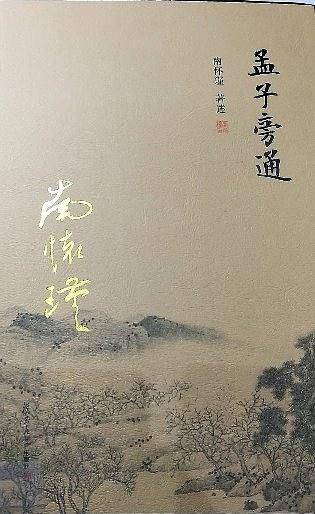 孟子旁通
南怀瑾 著述
南懷瑾